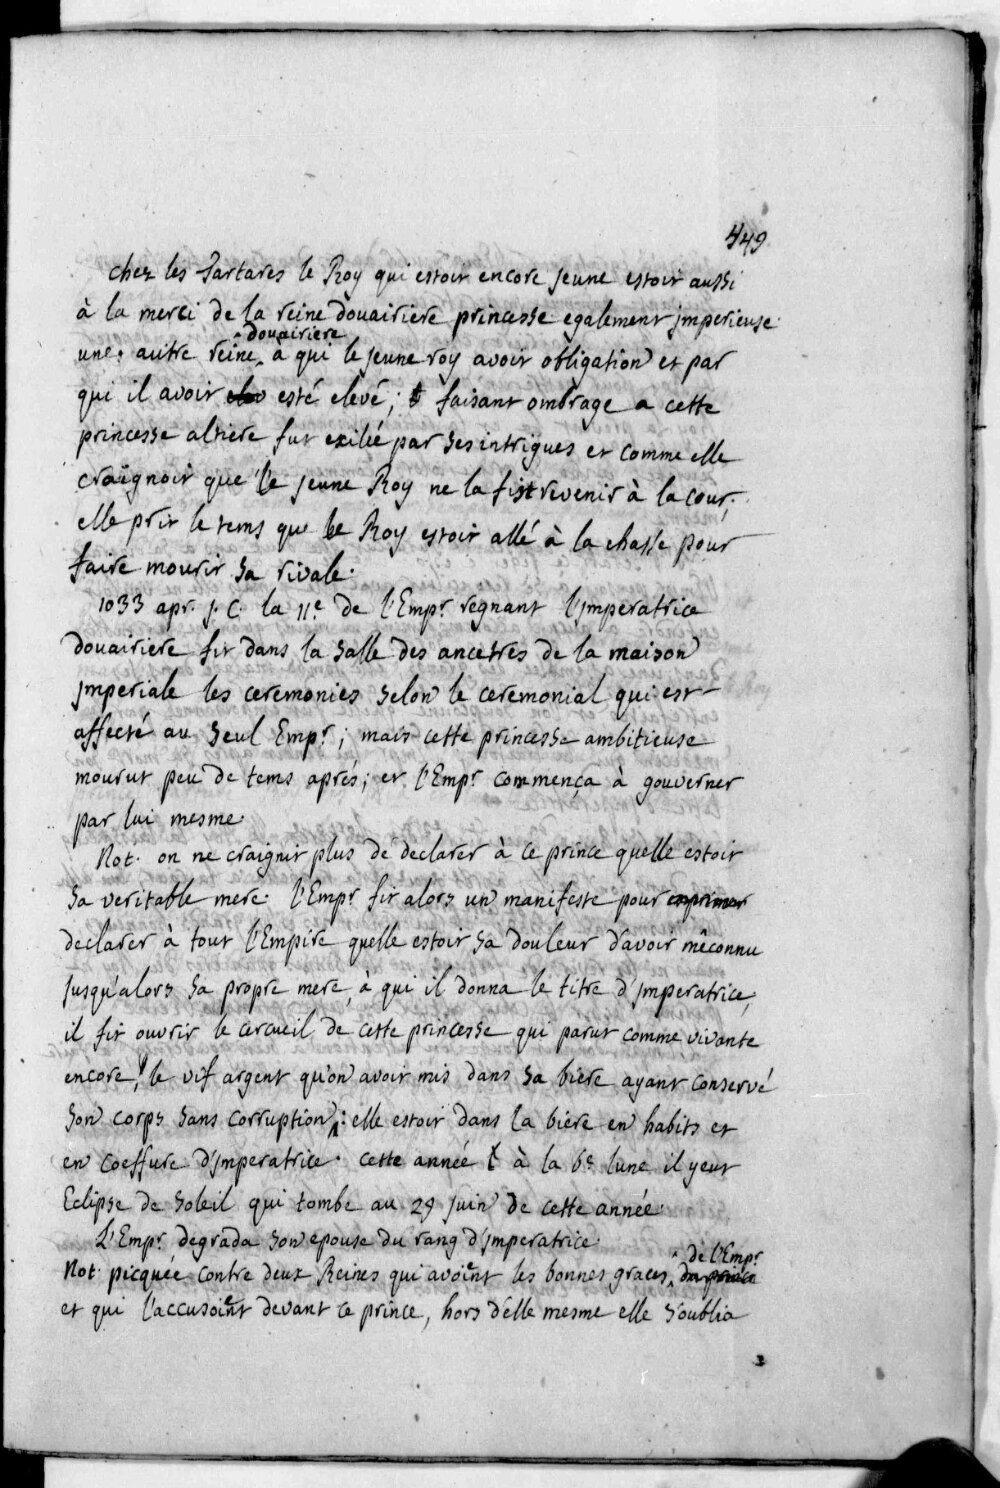 449
chez les Tartares le Roy qui estoit encore jeune estoit aussi
à la merci de la reine doüairiere princesse egalement jmperieuse
une autre reine douairiere à qui le jeune roy avoit obligation et par
qui il avoit esté elevé; faisant ombrage a cette
princesse altiere fut exilée par ses intrigues et comme elle
craignoit que le jeune Roy ne la fist revenir à la cour;
elle prit le tems que le Roy estoit allé à la chasse pour
faire mourir sa rivale.
1033 apr. J. C. la 11e de l'Empr. regnant l'jmperatrice
douairiere fit dans la salle des ancestres de la maison
jmperiale les ceremonies selon le ceremonial qui est
affecté au seul Empr.; mais cette princesse ambitieuse
mourut peu de tems aprés; et l'Empr. commença à gouverner
par lui mesme.
Not. on ne craignit plus de declarer à ce prince quelle estoit
sa veritable mere. l'Empr. fit alors un manifeste pour exprimer
declarer à tout l'Empire quelle estoit sa douleur d'avoir mêconnu
jusqu'alors sa propre mere, à qui il donna le titre d'jmperatrice,
il fit ouvrir le cercueil de cette princesse qui parut comme vivante
encore, le vif argent qu'on avoit mis dans sa biere ayant conservé
son corps sans corruption: elle estoit dans la biere en habits et
en coeffure d'jmperatrice. cette année à la 6e lune il y eut
Eclipse de soleil qui tombe au 29 juin de cette année.
L'Empr. degrada son epouse du rang d'jmperatrice.
Not. picquée contre deux Reines qui avoient les bonnes graces de l'Empr. du prince
et qui l'accusoient devant ce prince, hors d'elle mesme elle s'oublia